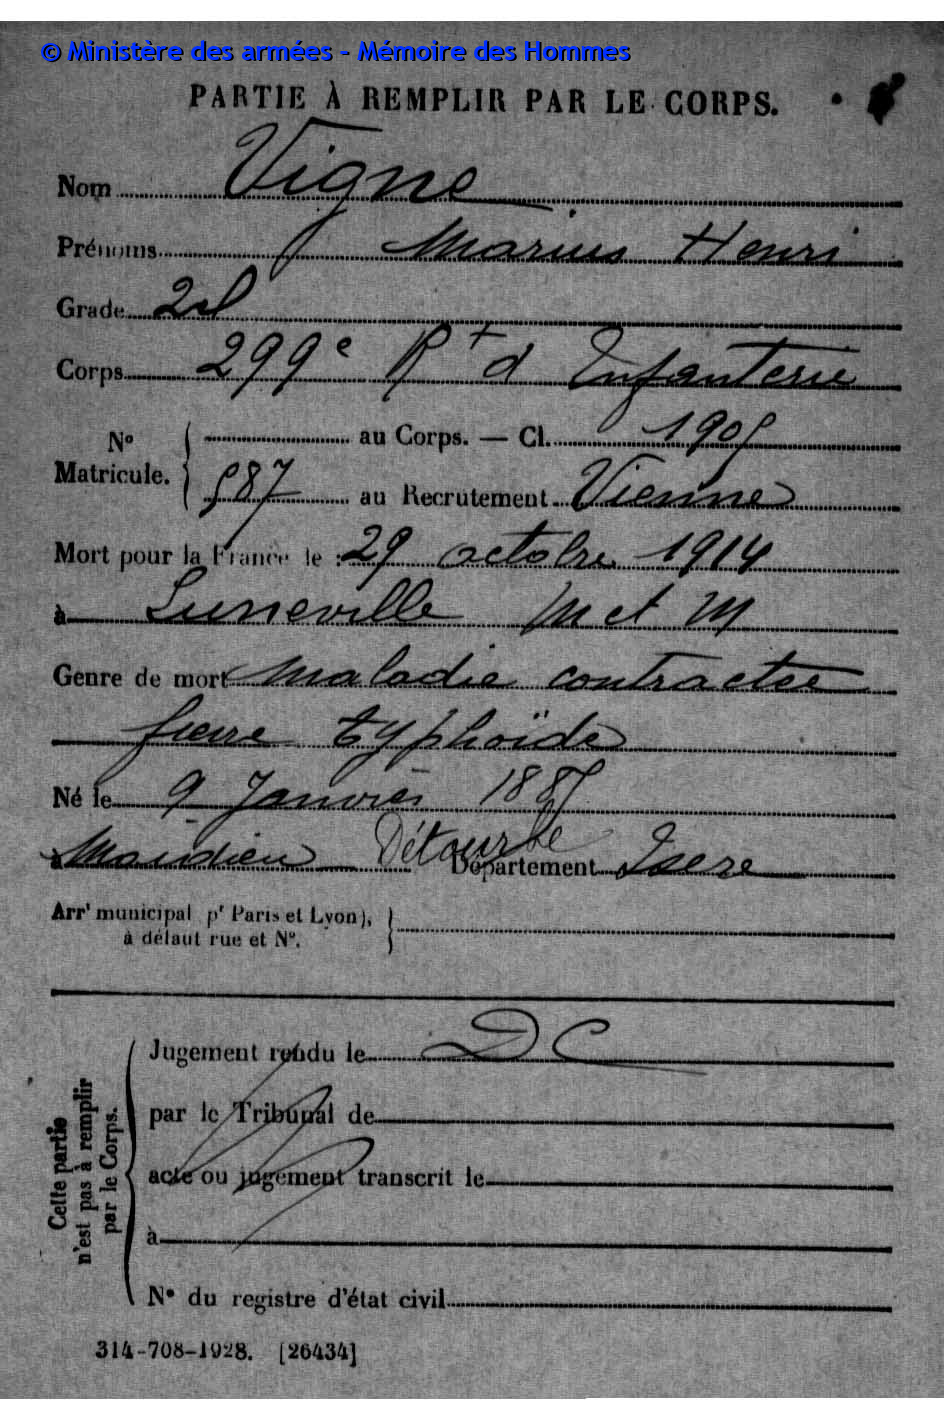 © Ministère des armées - Mémoire des Hommes
PARTIE À REMPLIR PAR LE CORPS.
Nom Vigne
Prénoms Marius Henri
Grade 2e
Corps 299e Rt d Infanterie
N° Matricule. { au Corps. — Cl. 1905
587 au Recrutement Vienne
Mort pour la France le : 29 octobre 1914
à Luneville M et M
Genre de mort maladie contractée
fievre typhoïde
Né le 9 Janvier 1885
à Détourbe Département Isere
Arrt municipal pr Paris et Lyon),
à défaut rue et N°.
Jugement rendu le DC
par le Tribunal de
acte ou jugement transcrit le
à
N° du registre d'état civil
Cette partie
n'est pas à remplir
par le Corps.
314-708-1928. [26434]